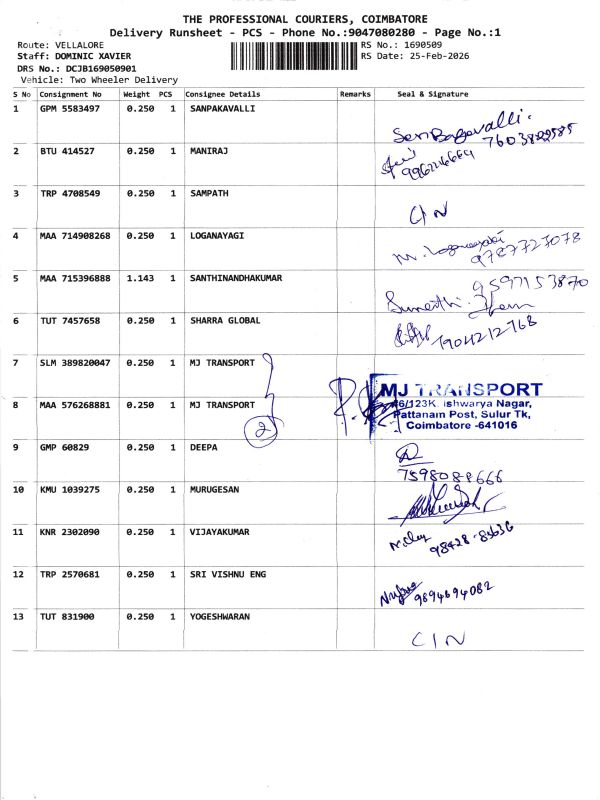 THE PROFESSIONAL COURIERS, COIMBATORE
Delivery Runsheet - PCS - Phone No.:9047080280 - Page No.:1
Route: VELLALORE
RS No.: 1690509
Staff: DOMINIC XAVIER
RS Date: 25-Feb-2026
DRS No.: DCJB169050901
Vehicle: Two Wheeler Delivery
S No Consignment No Weight PCS Consignee Details Remarks Seal & Signature
1 GPM 5583497 0.250 1 SANPAKAVALLI
2 BTU 414527 0.250 1 MANIRAJ
3 TRP 4708549 0.250 1 SAMPATH
C/N
4 MAA 714908268 0.250 1 LOGANAYAGI
9787727078
5 MAA 715396888 1.143 1 SANTHINANDHAKUMAR
9597153870
6 TUT 7457658 0.250 1 SHARRA GLOBAL
7904212768
7 SLM 389820047 0.250 1 MJ TRANSPORT
MJ TRANSPORT
46/123K, Ishwarya Nagar,
8 MAA 576268881 0.250 1 MJ TRANSPORT
Pattanam Post, Sulur Tk,
Coimbatore -641016
2
9 GMP 60829 0.250 1 DEEPA
7598088666
10 KMU 1039275 0.250 1 MURUGESAN
11 KNR 2302090 0.250 1 VIJAYAKUMAR
12 TRP 2570681 0.250 1 SRI VISHNU ENG
9894694082
13 TUT 831900 0.250 1 YOGESHWARAN
C/N